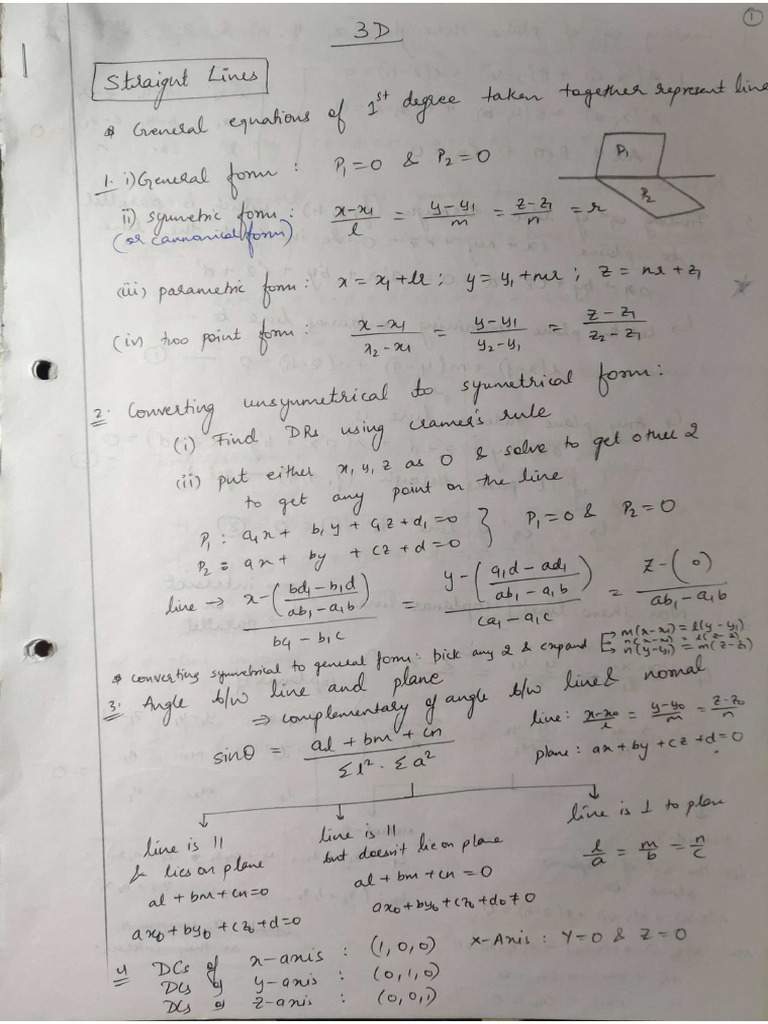 ①
3D
Straight Lines
* General equations of 1st degree taken together represent line
1. i) General form : P₁=0 & P₂=0
P₁
P₂
ii) symmetric form : (x-x₁)/l = (y-y₁)/m = (z-z₁)/n = r
(or cannonical form)
(iii) parametric form : x = x₁+lr ; y = y₁+mr ; z = nr+z₁
(iv) two point form : (x-x₁)/(x₂-x₁) = (y-y₁)/(y₂-y₁) = (z-z₁)/(z₂-z₁)
2. Converting unsymmetrical to symmetrical form :
(i) Find DRs using cramer's rule
(ii) put either x, y, z as 0 & solve to get other 2
to get any point on the line
P₁ : a₁x + b₁y + c₁z + d₁ = 0 } P₁=0 & P₂=0
P₂ = ax + by + cz + d = 0
line → (x-((bd₁-b₁d)/(ab₁-a₁b)))/(bc₁-b₁c) = (y-((a₁d-ad₁)/(ab₁-a₁b)))/(ca₁-a₁c) = (z-(0))/(ab₁-a₁b)
* converting symmetrical to general form : pick any 2 & expand
→ m(x-x₁) = l(y-y₁)
→ n(x-x₁) = l(z-z₁)
→ n(y-y₁) = m(z-z₁)
3. Angle b/w line and plane
⇒ complementary of angle b/w line & normal
line : (x-x₀)/l = (y-y₀)/m = (z-z₀)/n
sinθ = (al + bm + cn)/(Σl² · Σa²)
plane : ax + by + cz + d = 0
line is ||
& lies on plane
al + bm + cn = 0
ax₀ + by₀ + cz₀ + d = 0
line is ||
but doesn't lie on plane
al + bm + cn = 0
ax₀ + by₀ + cz₀ + d₀ ≠ 0
line is ⊥ to plane
l/a = m/b = n/c
4 DCs of x-axis : (1, 0, 0) X-Axis : Y=0 & Z=0
DCs of y-axis : (0, 1, 0)
DCs of z-axis : (0, 0, 1)